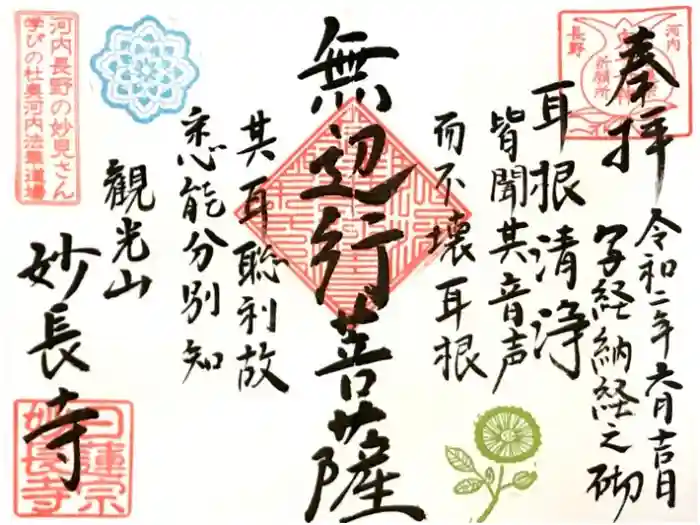 奉拝
令和二年六月吉日
写経納経之砌
耳根清浄
皆聞其音声
而不壊耳根
無辺行菩薩
其耳聡利故
悉能分別知
観光山
妙長寺
河内
長野
祈願所
河内長野の妙見さん
学びの杜奥河内法華道場
日蓮宗
妙長寺